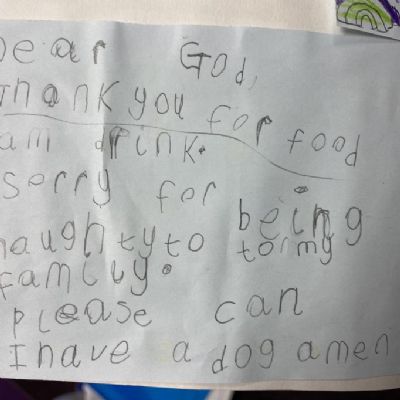 Dear God,
Thank you for food
am drink.
sorry for being
naughtyto to my
family.
please can
I have a dog amen